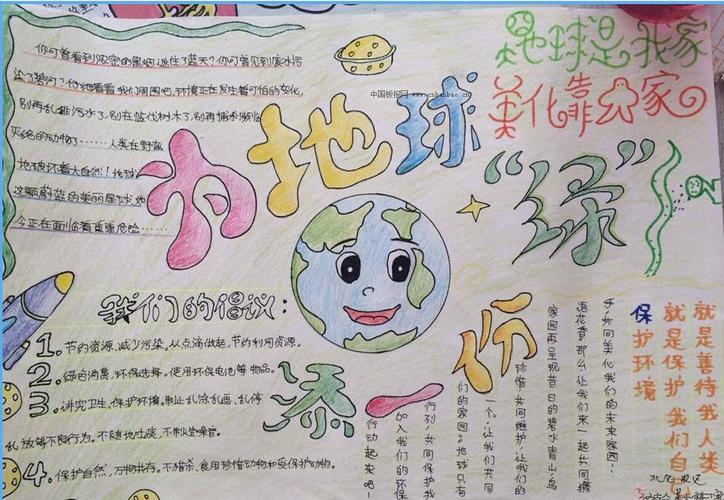 你可曾看到浓密的黑烟遮住了蓝天？你可曾见到废水污
染了碧河？你细看看我们周围吧，环境正在发生着可怕的变化，
别再乱排污水了，别在盗伐树木了，别再捕杀濒临
灭绝的动物了……人类在野蛮
地破坏着大自然！地球
这颗蔚蓝的美丽星球，她
今正在面临着重重危险……
中国板报网 www.cnbanbao.cn
地球是我家
美化靠大家
为地球
添一份
“绿”
我们的倡议：
1. 节约资源，减少污染。从点滴做起，节约利用资源。
2. 绿色消费，环保选择。使用环保电池等物品。
3. 讲究卫生，保护环境。制止乱涂乱画、乱停
乱放等不良行为。不随地吐痰，不制造噪音。
4. 保护自然，万物共存。不猎杀、食用珍惜动物和受保护动物。
保护环境
就是保护我们自
就是善待我人类
手，共同美化我们的未来家园！
语花香，那么让我们来一起共同携
家园再呈现昔日的碧水青山，鸟
珍惜，共同维护，让我们的
一个。让我们共同
们的家园。地球只有
行列，共同保护我
加入我们的环保
行动起来吧！